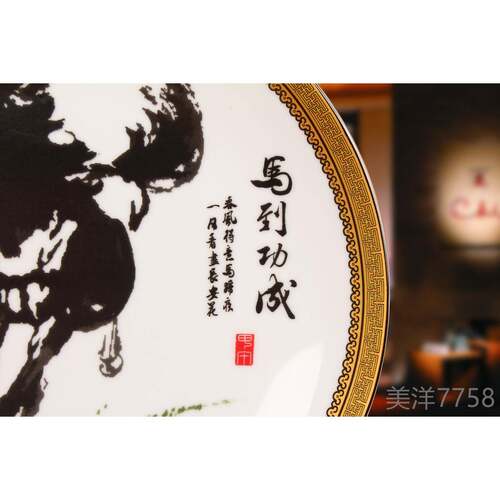 馬到功成
春風得意馬蹄疾
一日看盡長安花
美洋7758